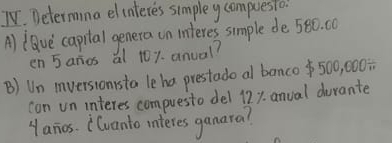 IV. Determina el interés simple y compuesto:
A) ¿Qué capital genera un interés simple de 580.00
en 5 años al 10 % anual?
B) Un inversionista le ha prestado al banco $ 500,000=
con un interes compuesto del 12 % anual durante
4 años. ¿Cuanto interes ganara?